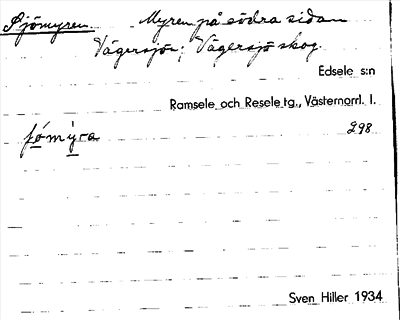 Sjömyren. Myren på södra sidan
Vägersjön; Vägersjö skog.
Edsele s:n
Ramsele och Resele tg., Västernorrl. l.
298
Sven Hiller 1934